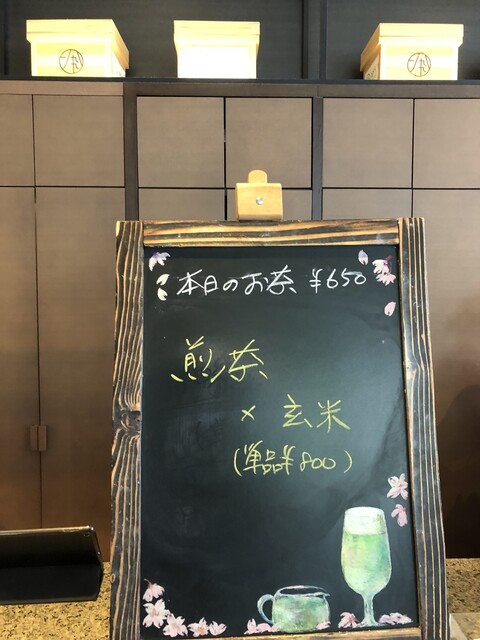 本日のお茶 ¥650
煎茶
× 玄米
(単品¥800)